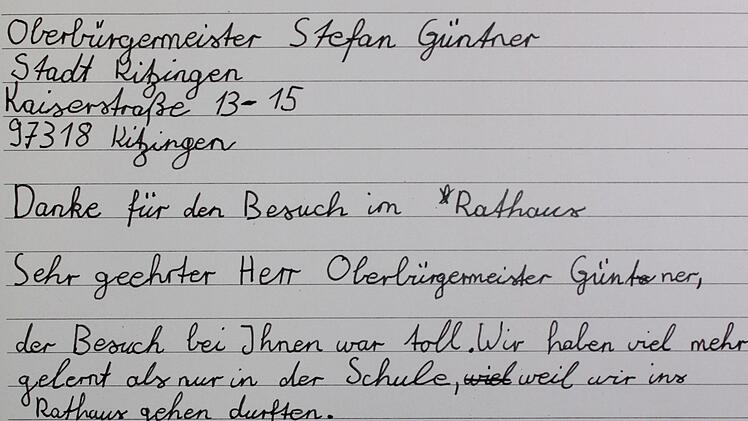 Oberbürgermeister Stefan Güntner
Stadt Kitzingen
Kaiserstraße 13-15
97318 Kitzingen
Danke für den Besuch im Rathaus
Sehr geehrter Herr Oberbürgermeister Güntner,
der Besuch bei Ihnen war toll. Wir haben viel mehr
gelernt als nur in der Schule, viel weil wir ins
Rathaus gehen durften.